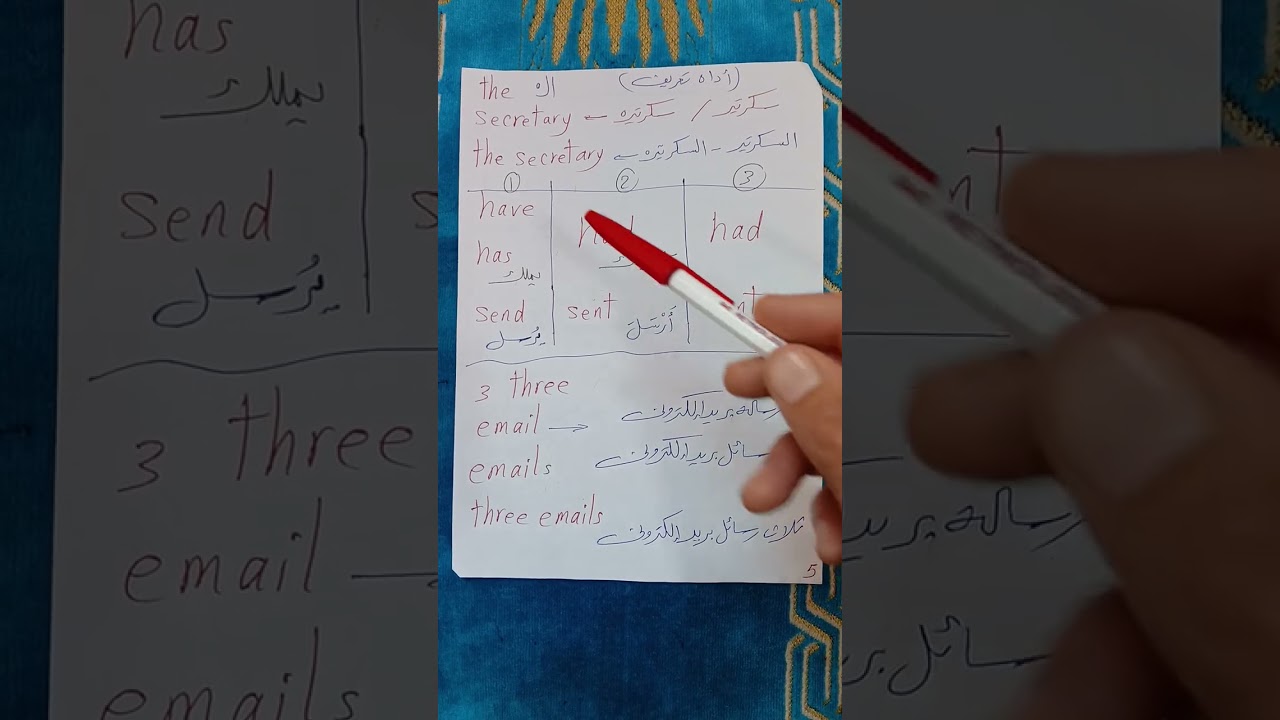 the الـ (أداة تعريف)
secretary ← سكرتيره / سكرتير
the secretary ← السكرتير - السكرتيره
① ② ③
have had had
has
يملك
send sent
يُرسل أَرْسَلَ
3 three
email → رسالة بريد إلكتروني
emails رسائل بريد إلكتروني
three emails ثلاث رسائل بريد إلكتروني
5